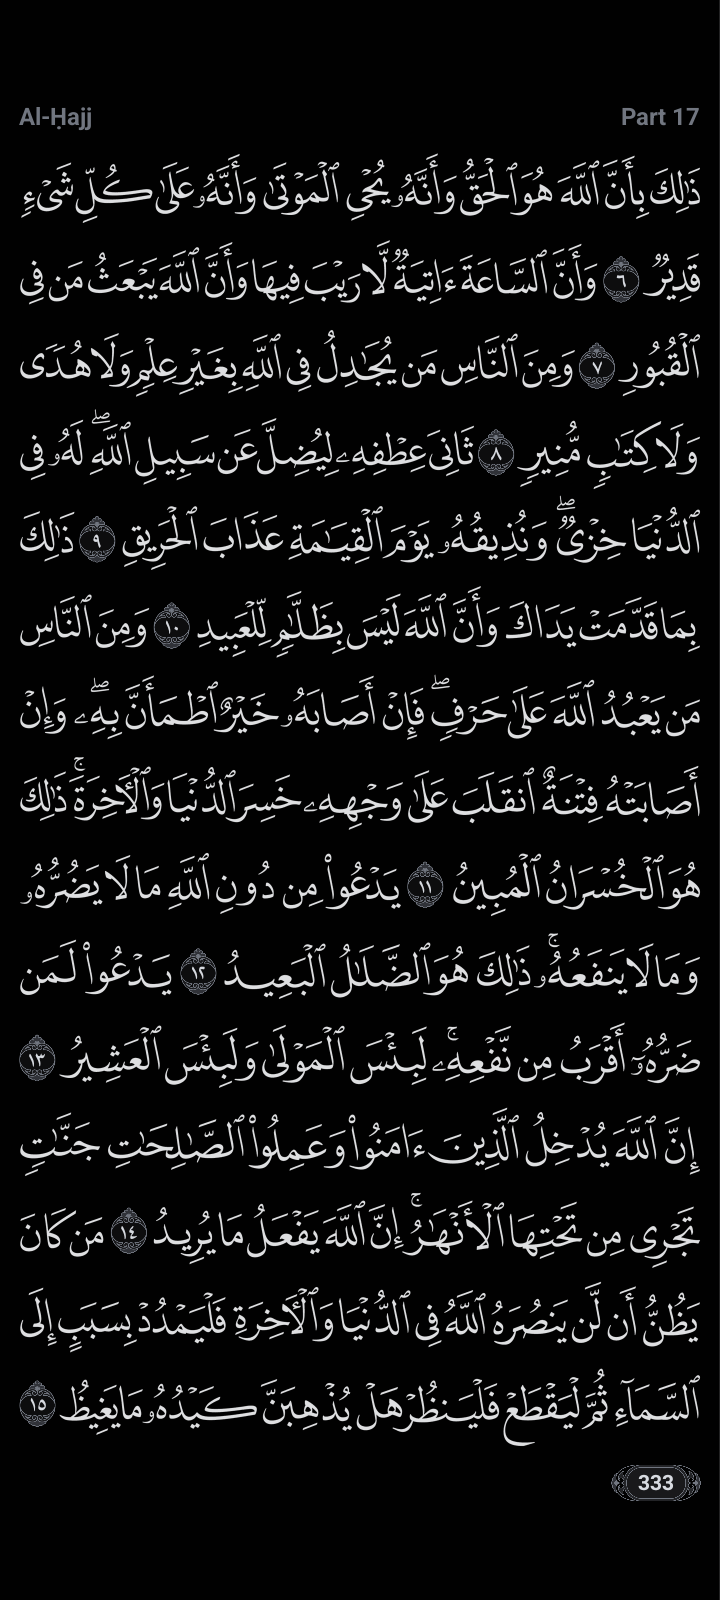 Al-Ḥajj Part 17
ذَٰلِكَ بِأَنَّ ٱللَّهَ هُوَ ٱلْحَقُّ وَأَنَّهُۥ يُحْىِ ٱلْمَوْتَىٰ وَأَنَّهُۥ عَلَىٰ كُلِّ شَىْءٍ
قَدِيرٌ ٦ وَأَنَّ ٱلسَّاعَةَ ءَاتِيَةٌ لَّا رَيْبَ فِيهَا وَأَنَّ ٱللَّهَ يَبْعَثُ مَن فِى
ٱلْقُبُورِ ٧ وَمِنَ ٱلنَّاسِ مَن يُجَٰدِلُ فِى ٱللَّهِ بِغَيْرِ عِلْمٍ وَلَا هُدًى
وَلَا كِتَٰبٍ مُّنِيرٍ ٨ ثَانِىَ عِطْفِهِۦ لِيُضِلَّ عَن سَبِيلِ ٱللَّهِ ۖ لَهُۥ فِى
ٱلدُّنْيَا خِزْىٌ ۖ وَنُذِيقُهُۥ يَوْمَ ٱلْقِيَٰمَةِ عَذَابَ ٱلْحَرِيقِ ٩ ذَٰلِكَ
بِمَا قَدَّمَتْ يَدَاكَ وَأَنَّ ٱللَّهَ لَيْسَ بِظَلَّٰمٍ لِّلْعَبِيدِ ١٠ وَمِنَ ٱلنَّاسِ
مَن يَعْبُدُ ٱللَّهَ عَلَىٰ حَرْفٍ ۖ فَإِنْ أَصَابَهُۥ خَيْرٌ ٱطْمَأَنَّ بِهِۦ ۖ وَإِنْ
أَصَابَتْهُ فِتْنَةٌ ٱنقَلَبَ عَلَىٰ وَجْهِهِۦ خَسِرَ ٱلدُّنْيَا وَٱلْـَٔاخِرَةَ ۚ ذَٰلِكَ
هُوَ ٱلْخُسْرَانُ ٱلْمُبِينُ ١١ يَدْعُوا۟ مِن دُونِ ٱللَّهِ مَا لَا يَضُرُّهُۥ
وَمَا لَا يَنفَعُهُۥ ۚ ذَٰلِكَ هُوَ ٱلضَّلَٰلُ ٱلْبَعِيدُ ١٢ يَدْعُوا۟ لَمَن
ضَرُّهُۥٓ أَقْرَبُ مِن نَّفْعِهِۦ ۚ لَبِئْسَ ٱلْمَوْلَىٰ وَلَبِئْسَ ٱلْعَشِيرُ ١٣
إِنَّ ٱللَّهَ يُدْخِلُ ٱلَّذِينَ ءَامَنُوا۟ وَعَمِلُوا۟ ٱلصَّٰلِحَٰتِ جَنَّٰتٍ
تَجْرِى مِن تَحْتِهَا ٱلْأَنْهَٰرُ ۚ إِنَّ ٱللَّهَ يَفْعَلُ مَا يُرِيدُ ١٤ مَن كَانَ
يَظُنُّ أَن لَّن يَنصُرَهُ ٱللَّهُ فِى ٱلدُّنْيَا وَٱلْـَٔاخِرَةِ فَلْيَمْدُدْ بِسَبَبٍ إِلَى
ٱلسَّمَآءِ ثُمَّ لْيَقْطَعْ فَلْيَنظُرْ هَلْ يُذْهِبَنَّ كَيْدُهُۥ مَا يَغِيظُ ١٥
333